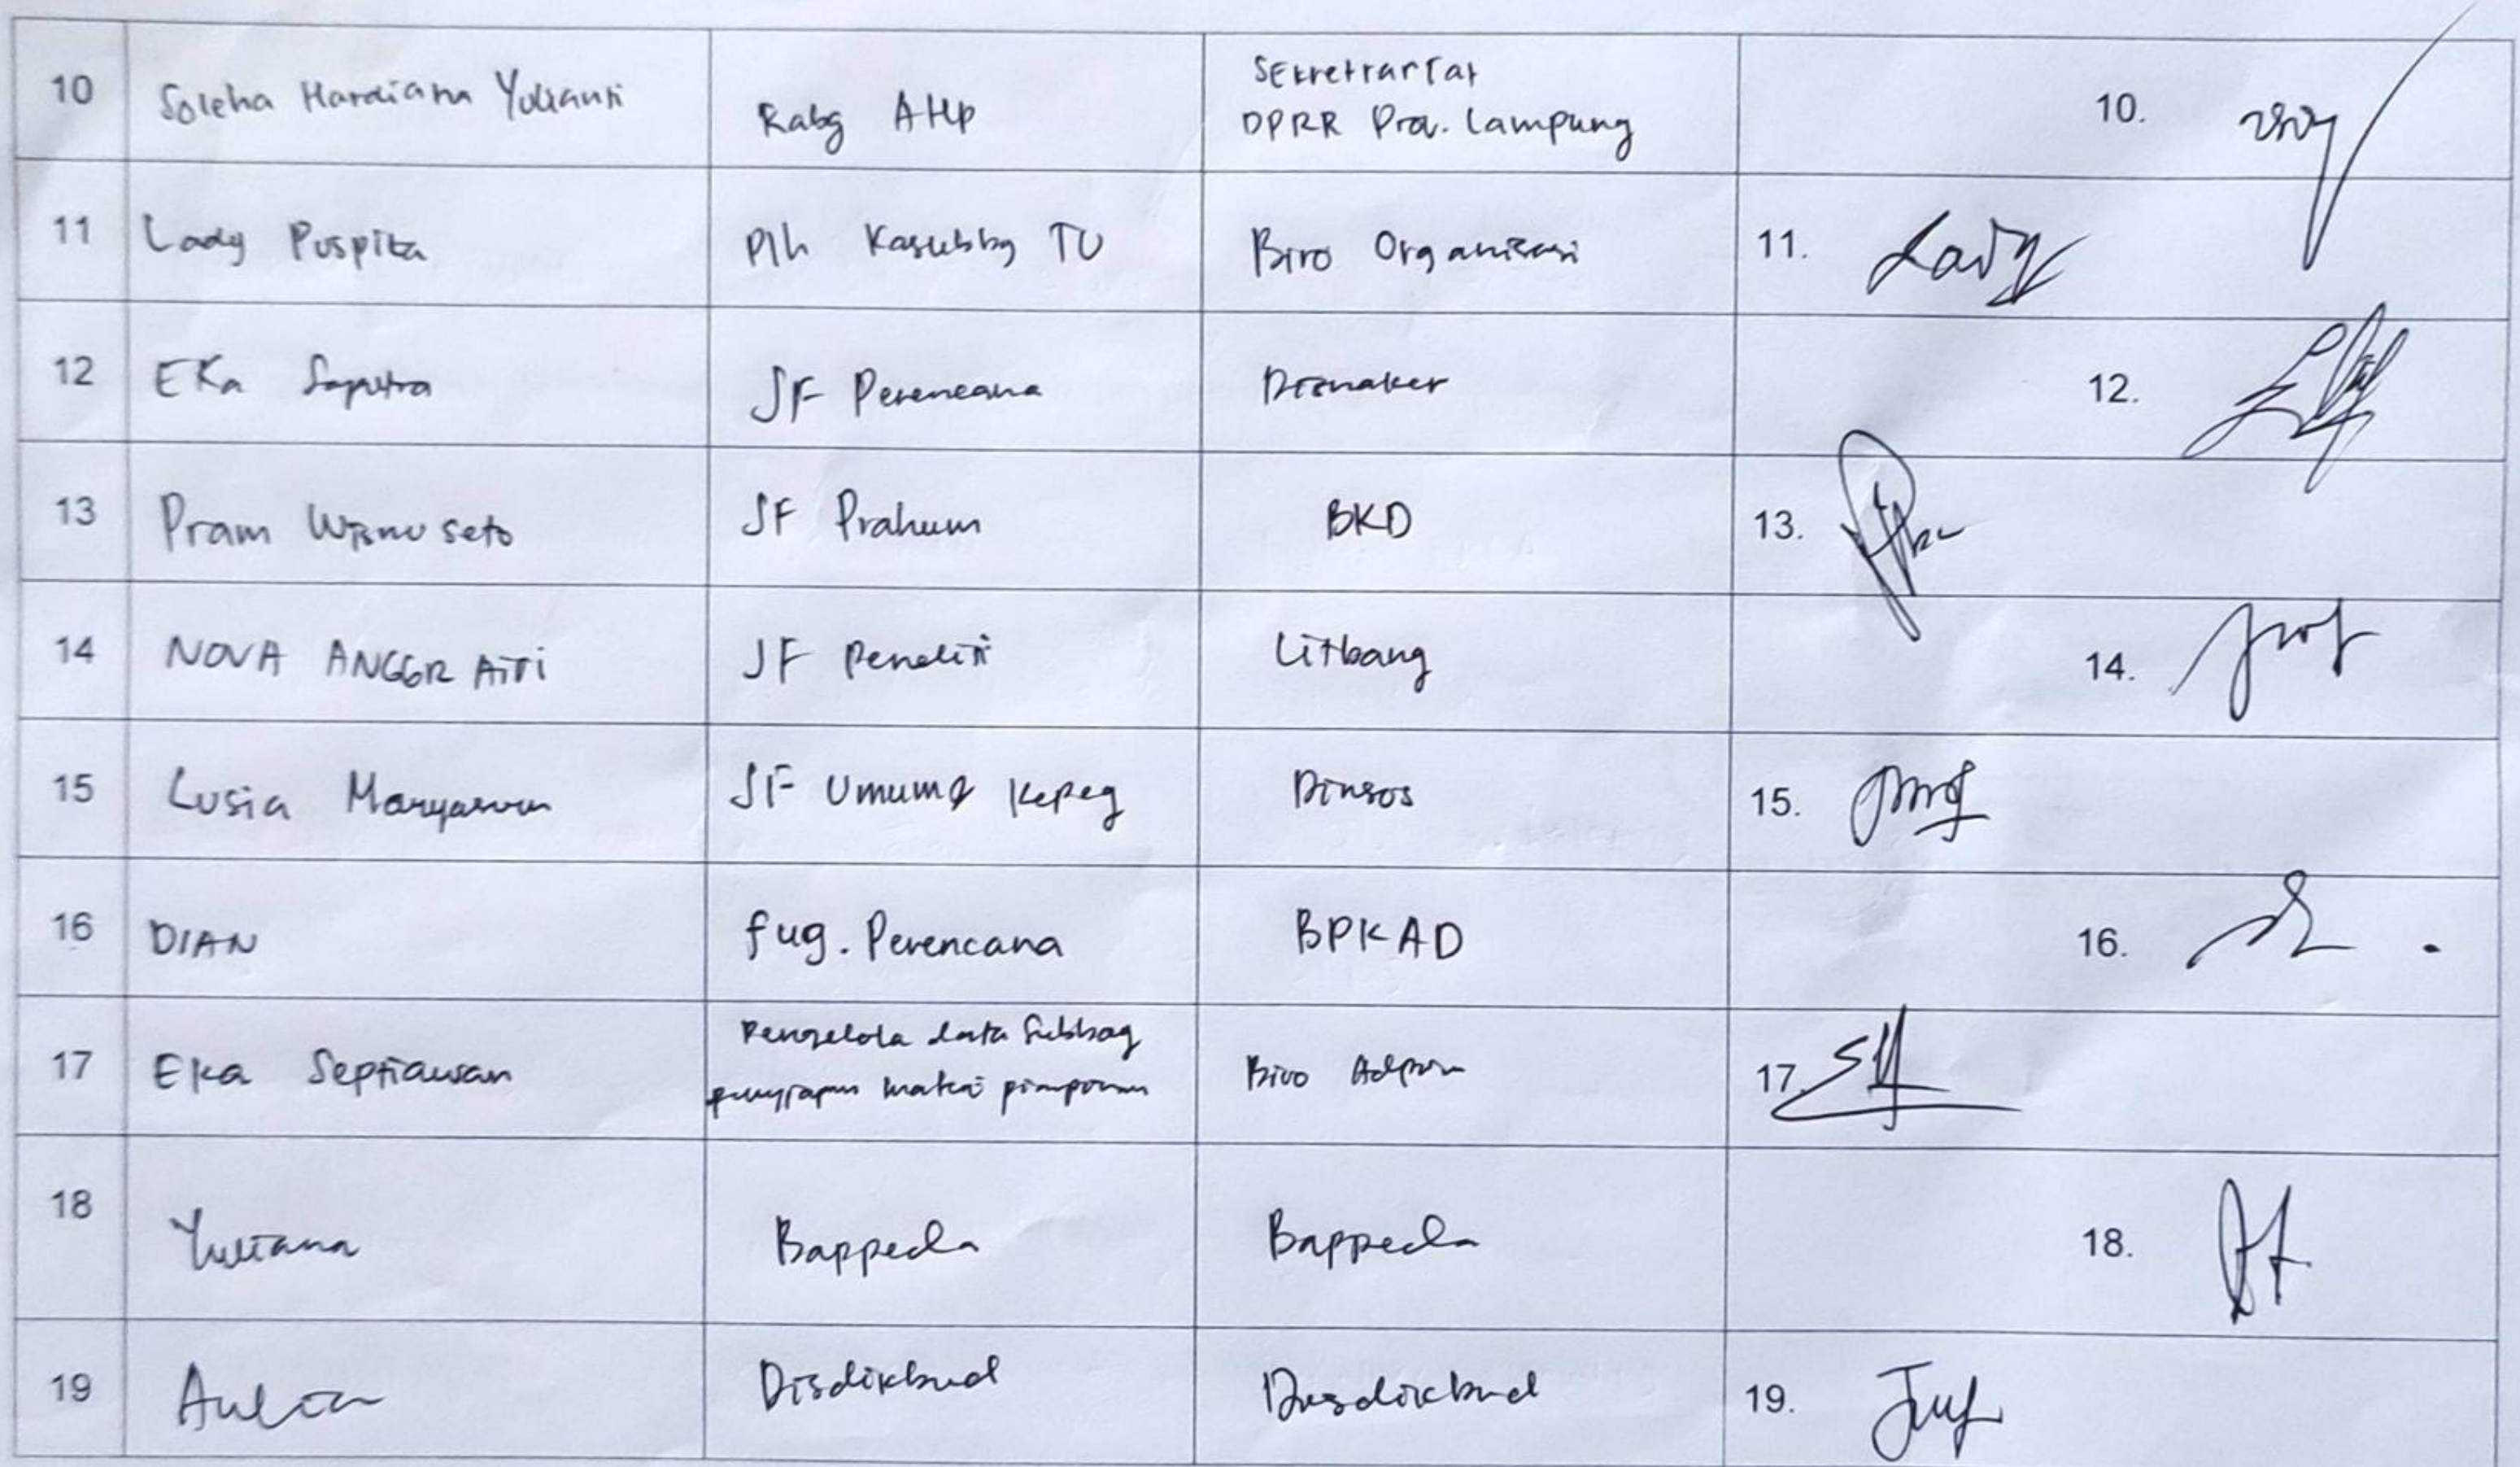 10 Soleha Hardiana Yulianti Kabg AHP Sekretrariat
DPRR Prov. Lampung 10.
11 Lady Puspita Plh Kasubbg TU Biro Organisasi 11. Lady
12 EKa Saputra JF Perencana Disnaker 12.
13 Pram Wisnu seto JF Prahum BKD 13.
14 NOVA ANGGRAITI JF Peneliti Litbang 14.
15 Lusia JF Umum & Kepeg Dinsos 15.
16 DIAN fug. Perencana BPKAD 16.
17 Eka Septiawan Pengelola data Subbag Biro Adpim 17.
materi pimpinan
18 Yuliana Bappeda Bappeda 18.
19 Aulia Disdikbud Disdikbud 19.